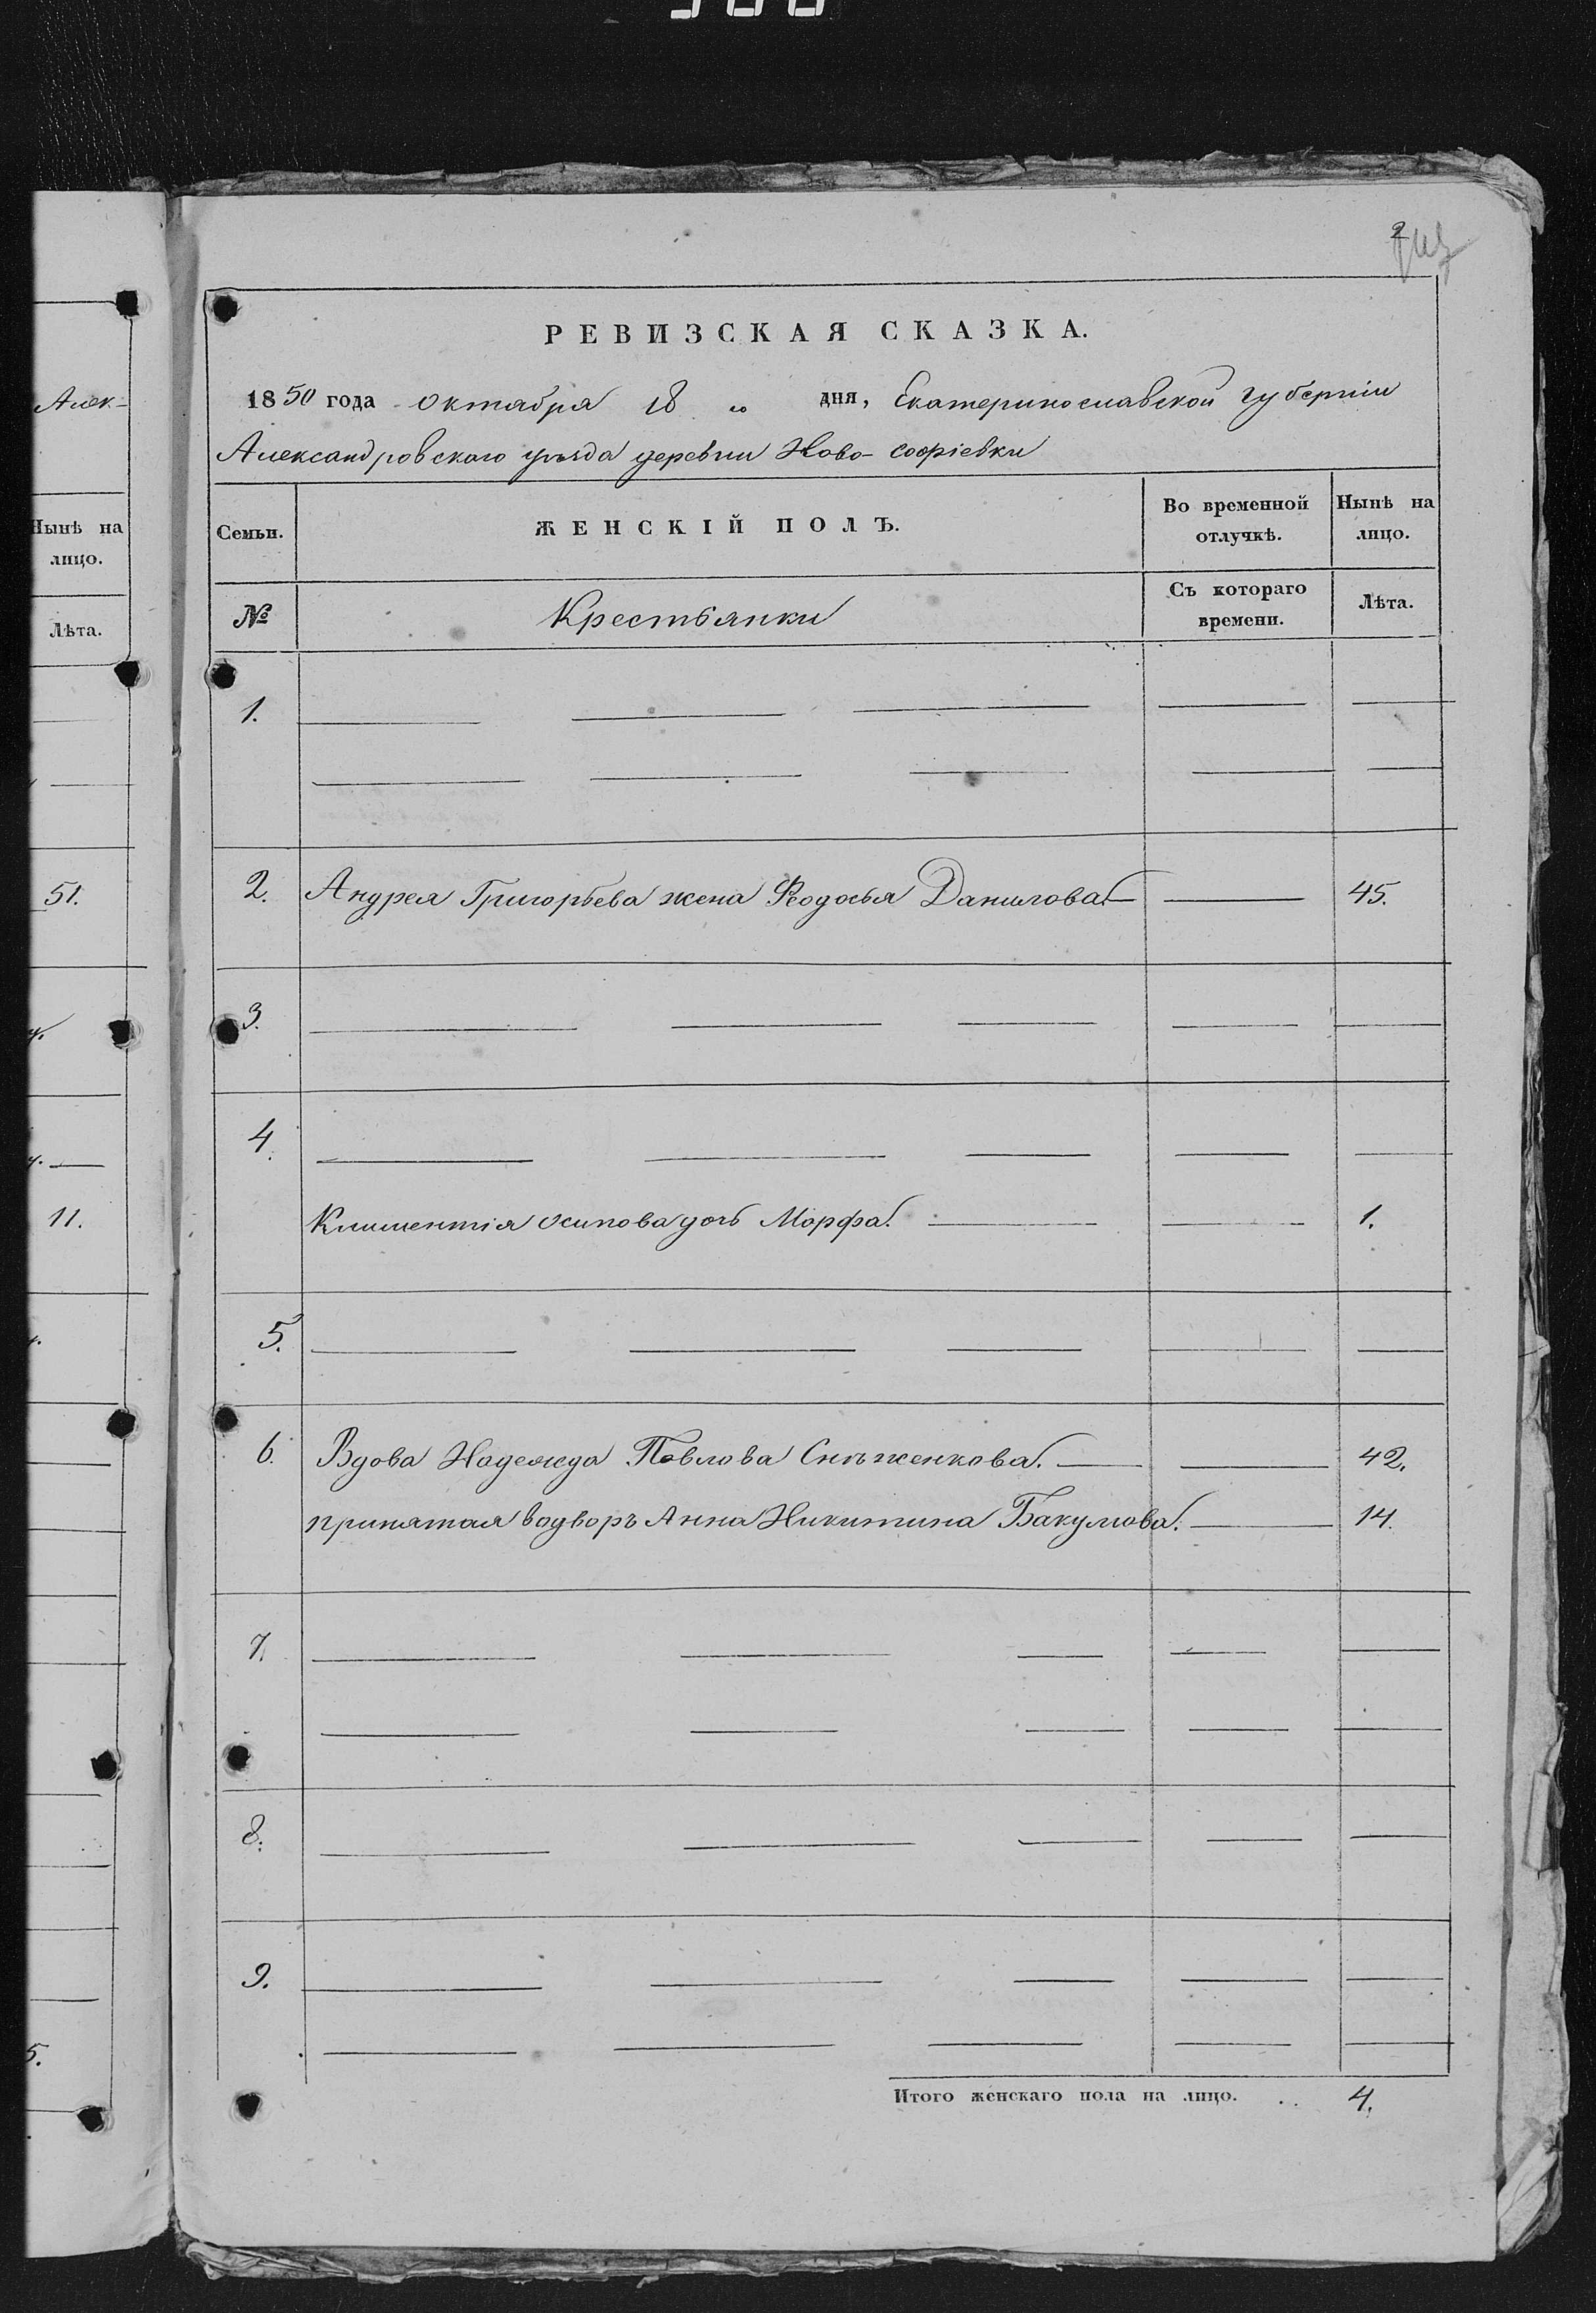 2
РЕВИЗСКАЯ СКАЗКА.
1850 года октября 18 „ дня, Екатеринославской губернiи
Александровскаго уѣзда деревни Ново-Софiевки
Семьи.
ЖЕНСКIЙ ПОЛЪ.
Во временной отлучкѣ.
Нынѣ на лицо.
№
Крестьянки
Съ котораго времени.
Лѣта.
1.
2. Андрея Григорьева жена Феодосья Данилова. 45.
3.
4.
Климентiя Осипова дочь Марфа. 1.
5.
6. Вдова Надежда Павлова Снѣженкова. 42.
принятая водворъ Анна Никитина Бакумова. 14.
7.
8.
9.
Итого женскаго пола на лицо. . . 4.
Алек-
Нынѣ на
лицо.
Лѣта.
51.
11.
5.